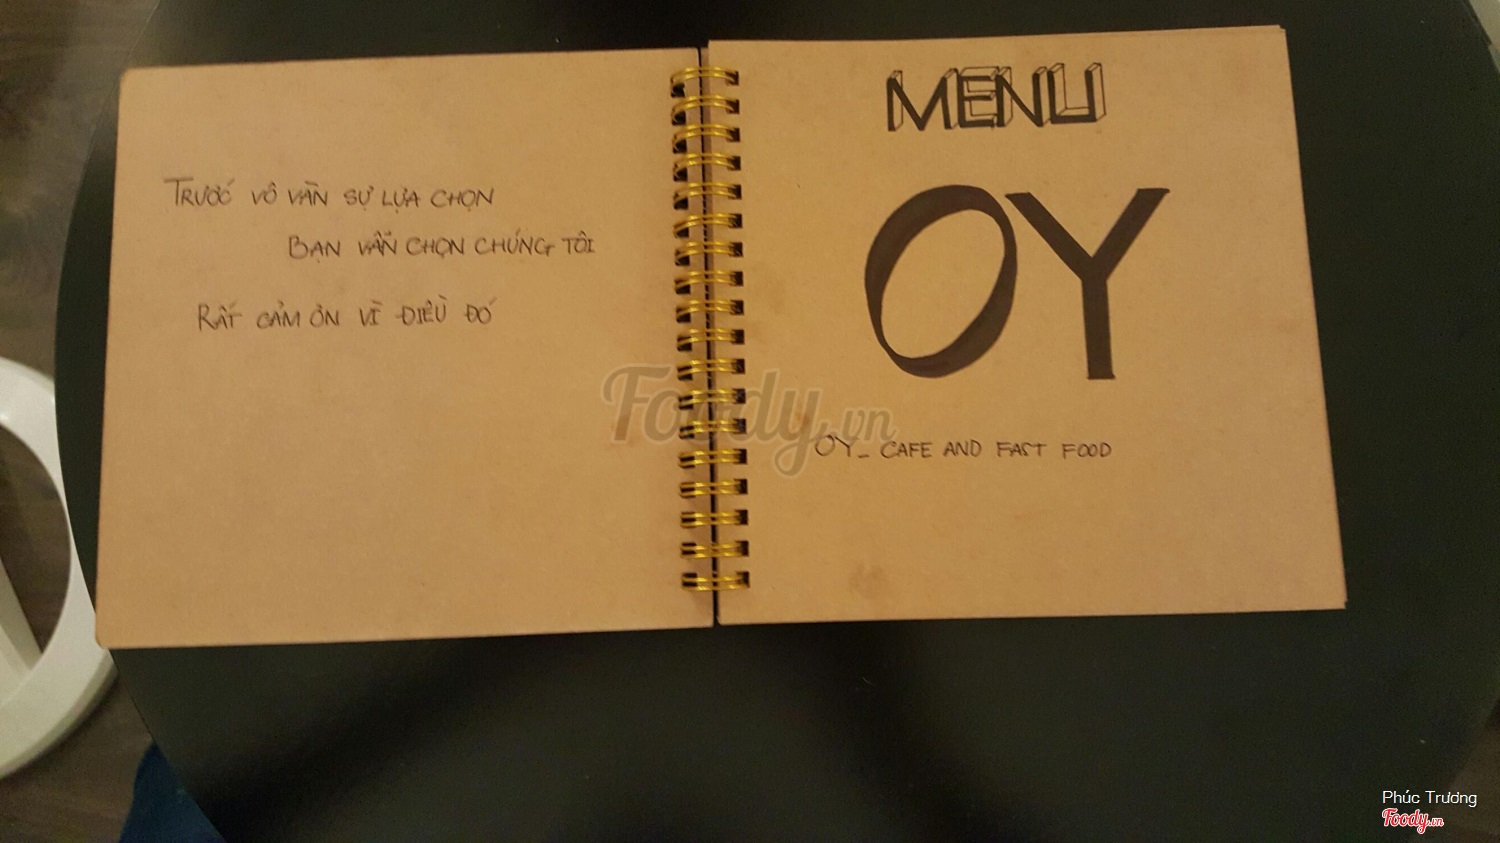 TRƯỚC VÔ VÀN SỰ LỰA CHỌN
BẠN VẪN CHỌN CHÚNG TÔI
RẤT CẢM ƠN VÌ ĐIỀU ĐÓ
MENU
OY
OY_ CAFE AND FAST FOOD
Foody.vn
Phúc Trương
Foody.vn